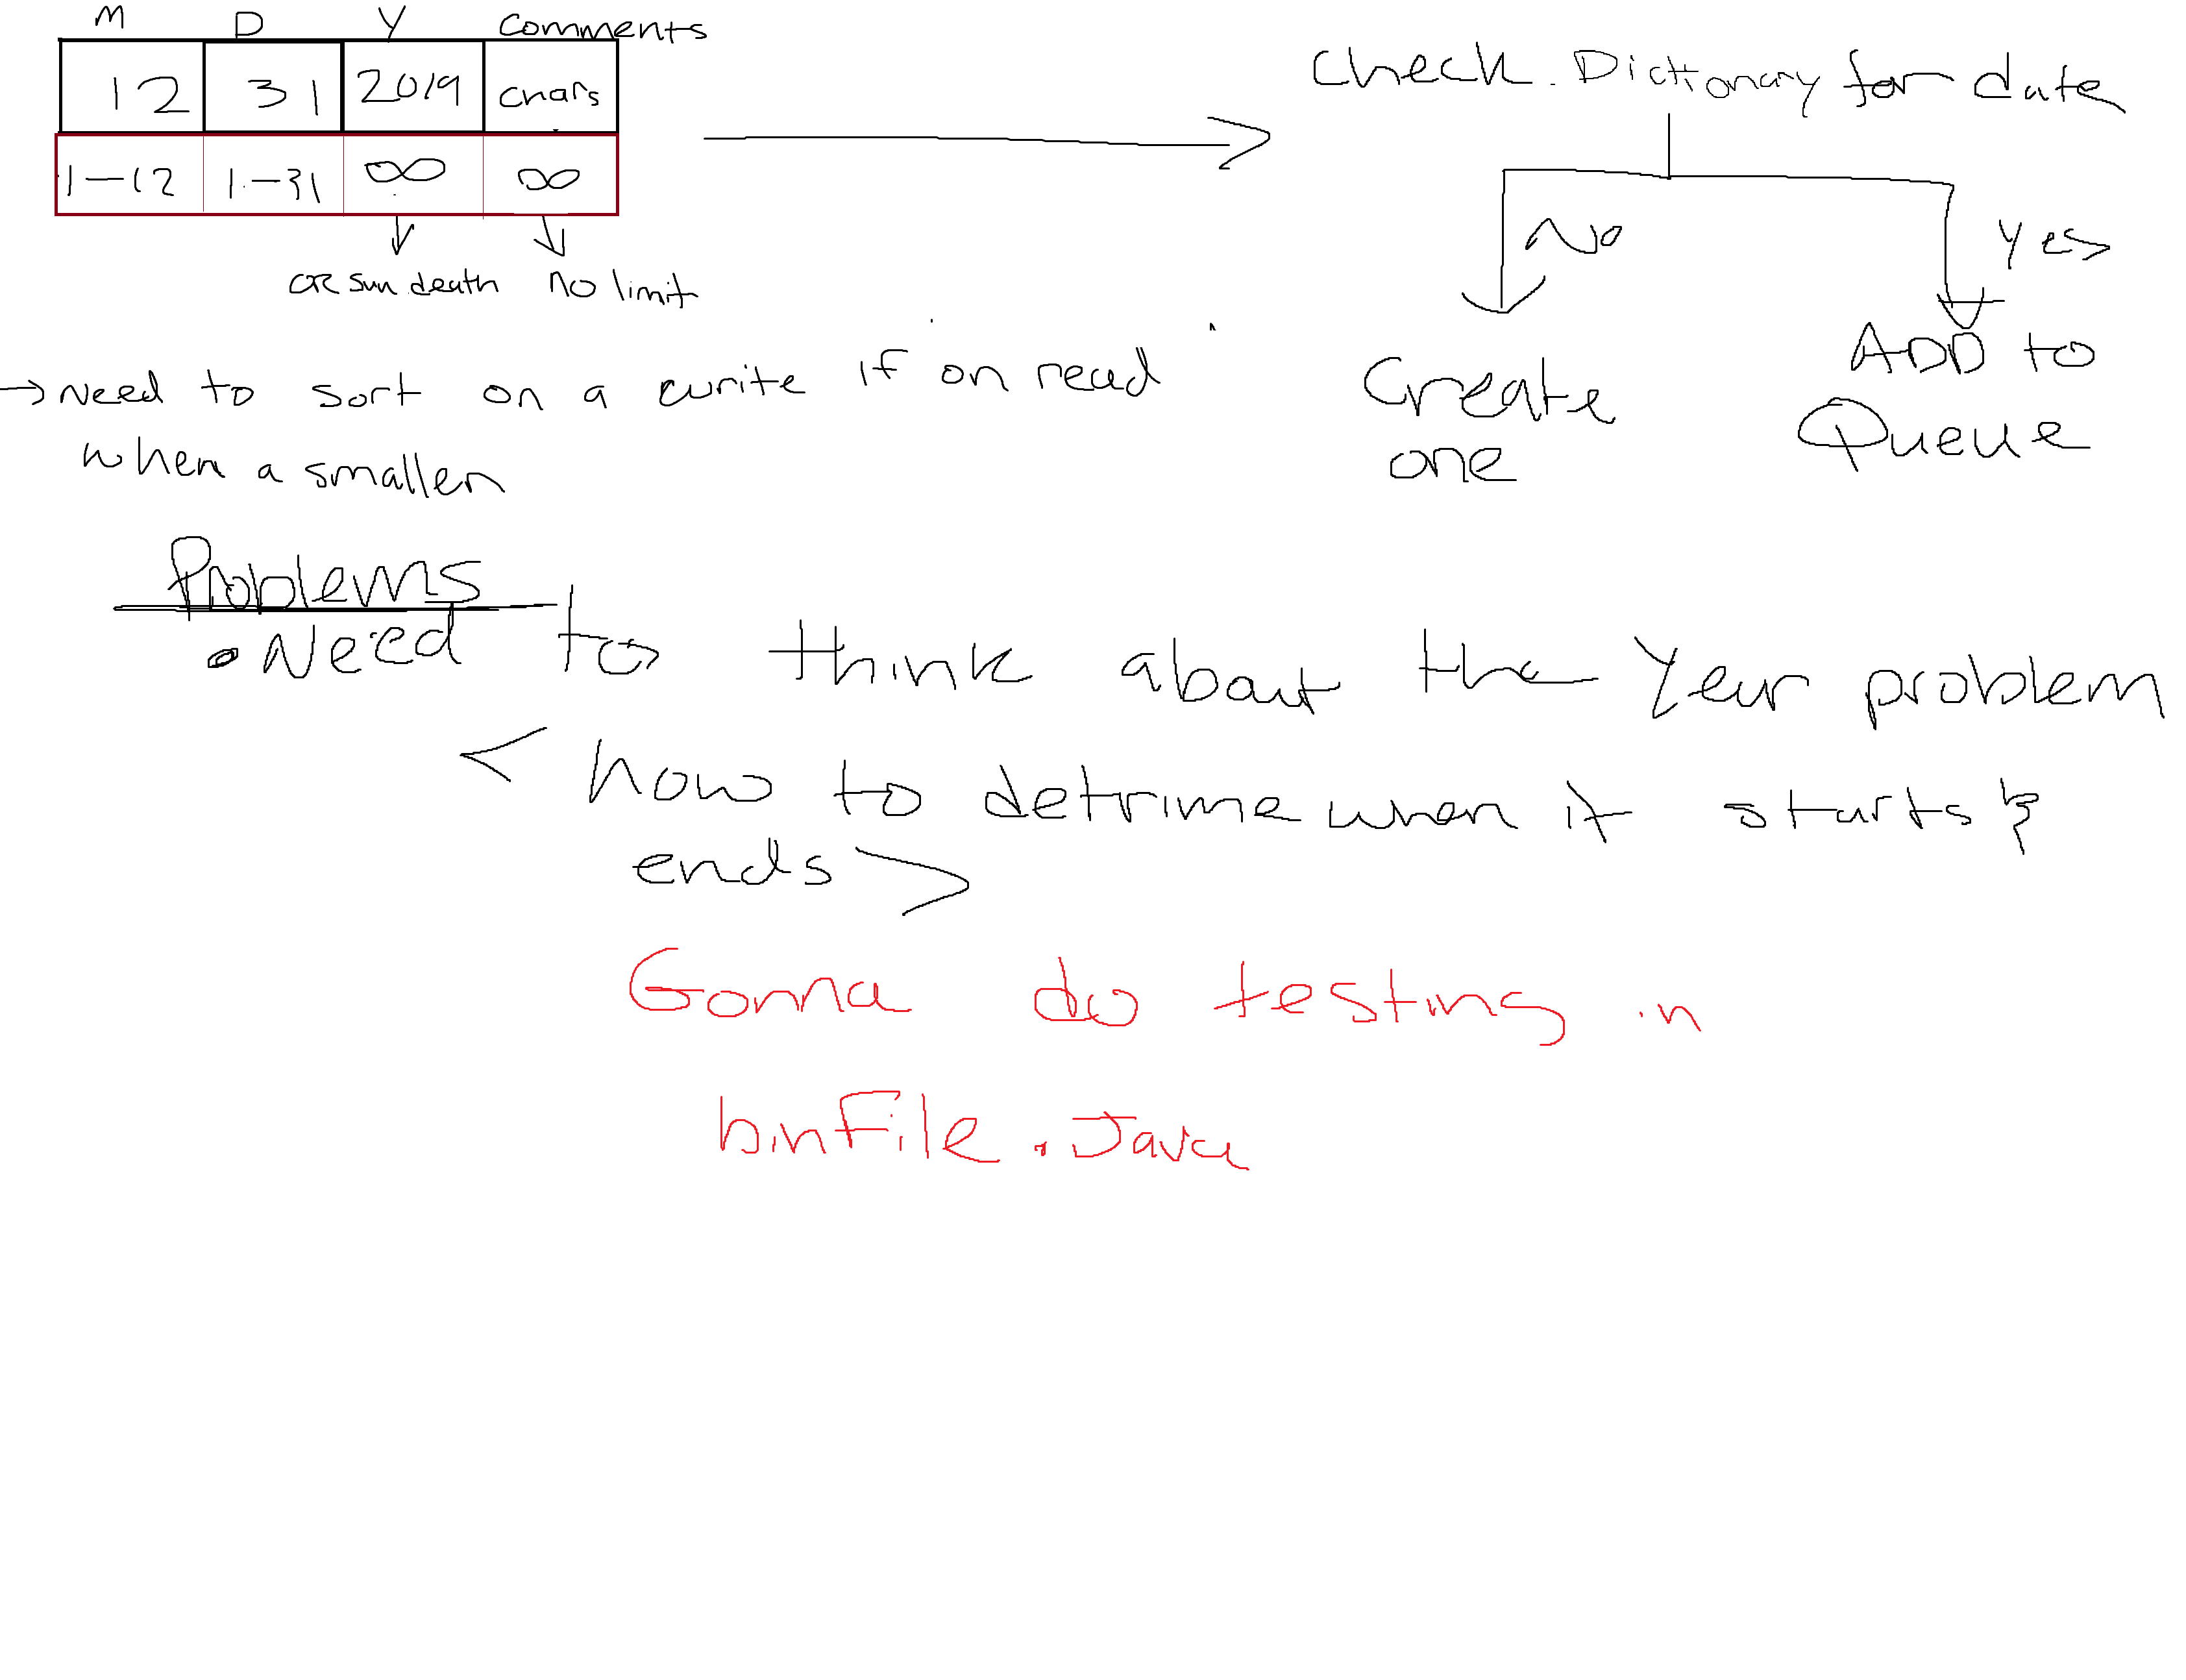 M D Y comments
12 31 2019 chars
1-12 1-31 ∞ ∞
or sun death no limit
check Dictionary for date
No Yes
Create
one
ADD to
Queue
→ Need to sort on a write if on read
when a smaller
Problems
• Need to think about the Year problem
< how to detrime when it starts &
ends >
Gonna do testing in
binFile.Java